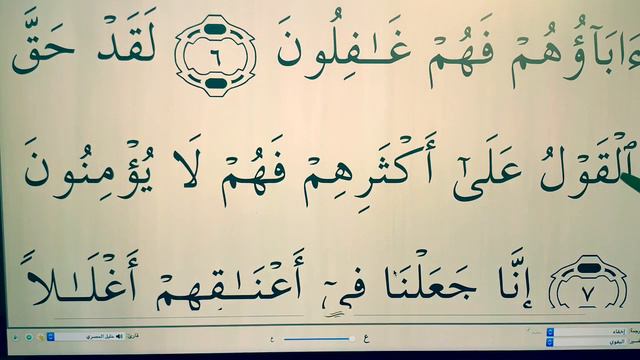 ءَابَآؤُهُمْ فَهُمْ غَـٰفِلُونَ ٦ لَقَدْ حَقَّ
ٱلْقَوْلُ عَلَىٰٓ أَكْثَرِهِمْ فَهُمْ لَا يُؤْمِنُونَ
٧ إِنَّا جَعَلْنَا فِىٓ أَعْنَـٰقِهِمْ أَغْلَـٰلًا
إخفاء
البغوي
ع ع
قارئ: خليل الحصري